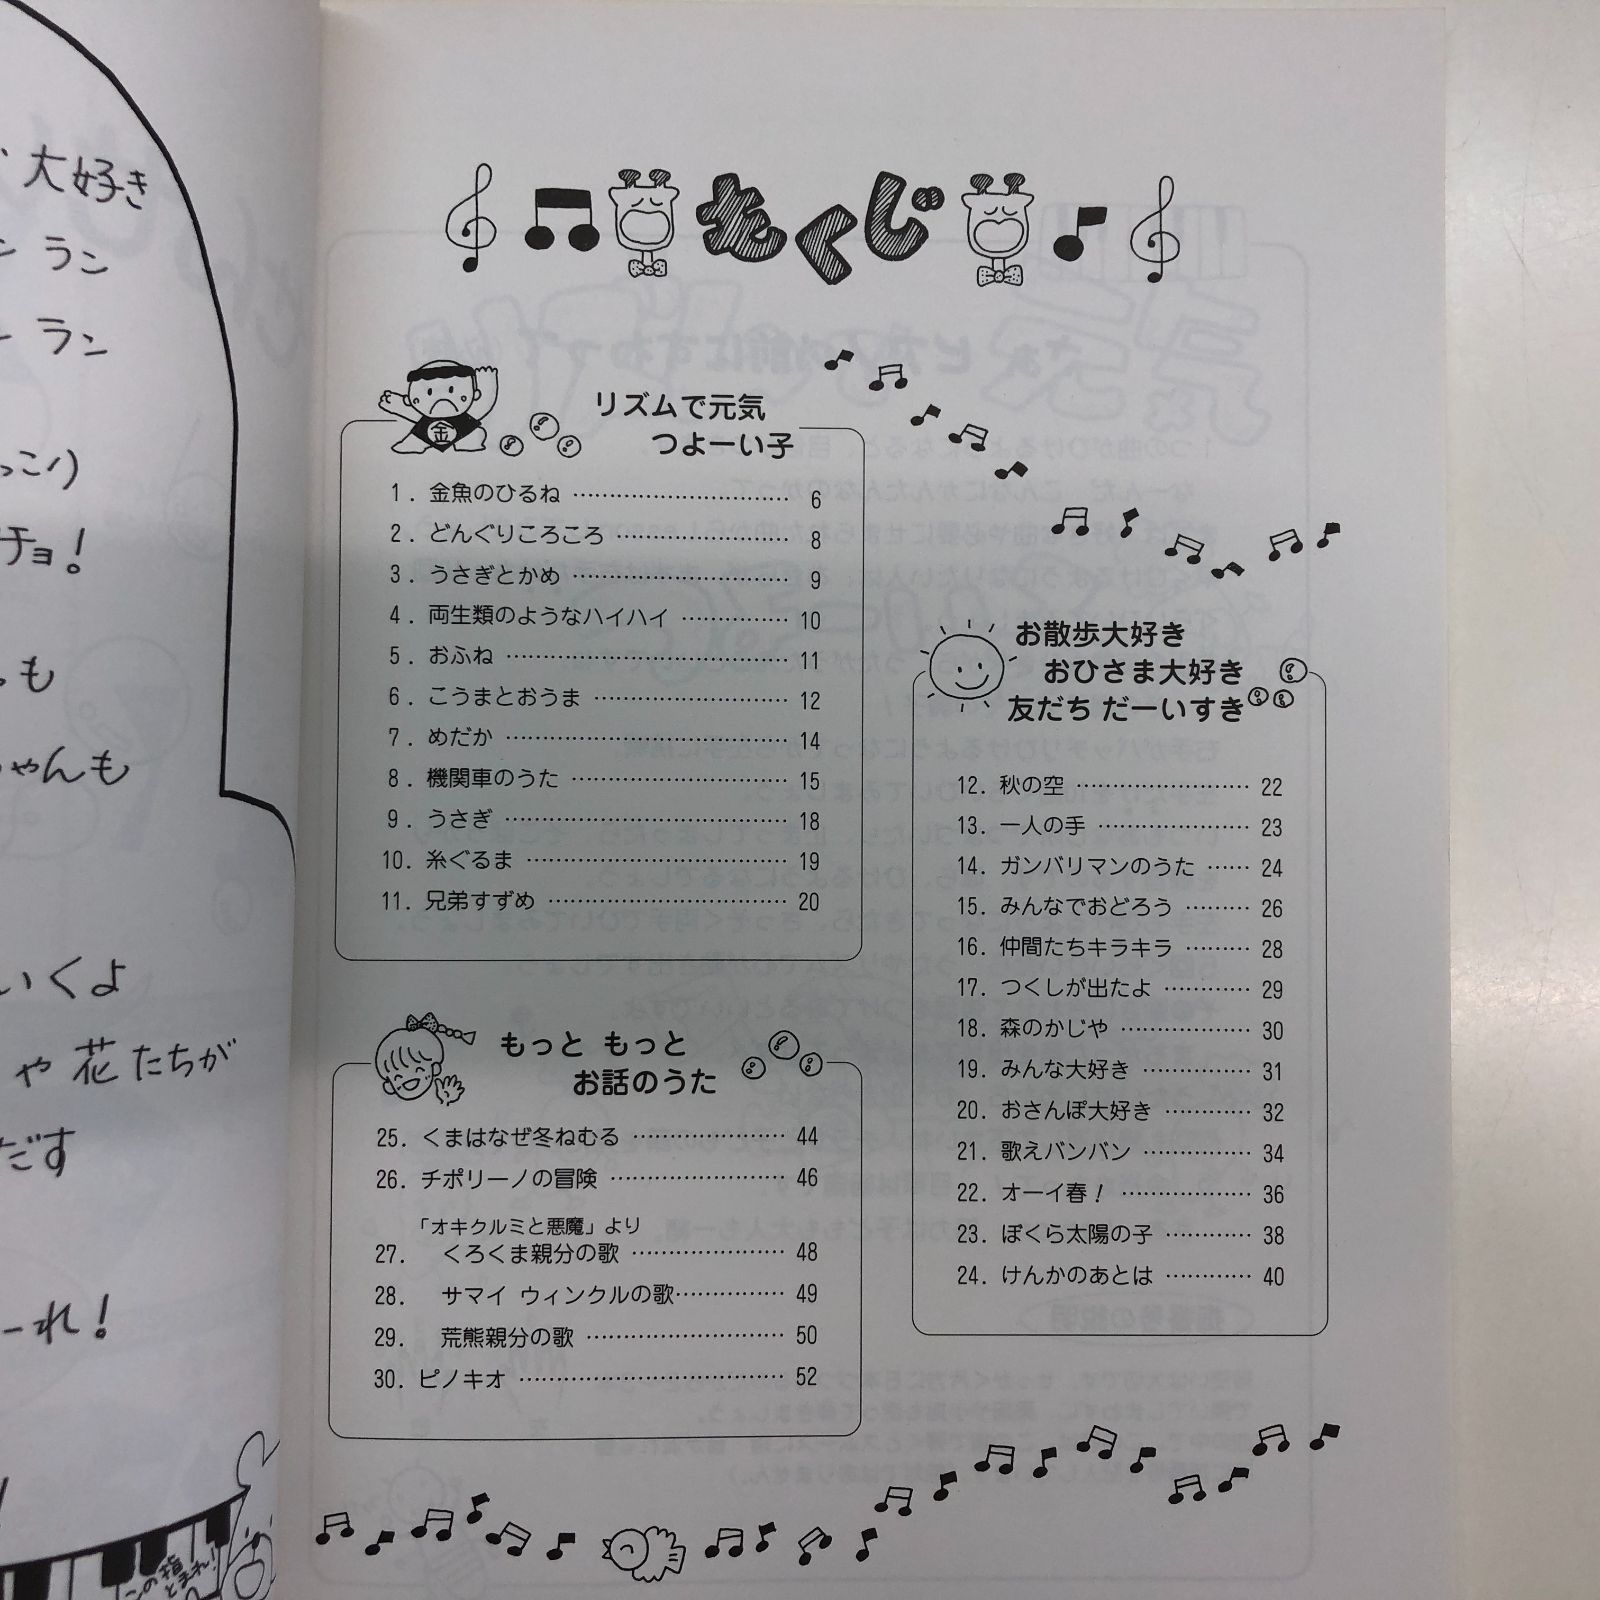 大好き
ラン
ラン
っこり
チョ!
も
ちゃんも
いくよ
や花たちが
だす
ーれ!
この指
とまれ!
もくじ
リズムで元気
つよーい子
金
1. 金魚のひるね 6
2. どんぐりころころ 8
3. うさぎとかめ 9
4. 両生類のようなハイハイ 10
5. おふね 11
6. こうまとおうま 12
7. めだか 14
8. 機関車のうた 15
9. うさぎ 18
10. 糸ぐるま 19
11. 兄弟すずめ 20
お散歩大好き
おひさま大好き
友だち だーいすき
12. 秋の空 22
13. 一人の手 23
14. ガンバリマンのうた 24
15. みんなでおどろう 26
16. 仲間たちキラキラ 28
17. つくしが出たよ 29
18. 森のかじや 30
19. みんな大好き 31
20. おさんぽ大好き 32
21. 歌えバンバン 34
22. オーイ春! 36
23. ぼくら太陽の子 38
24. けんかのあとは 40
もっと もっと
お話のうた
25. くまはなぜ冬ねむる 44
26. チポリーノの冒険 46
「オキクルミと悪魔」より
27. くろくま親分の歌 48
28. サマイ ウィンクルの歌 49
29. 荒熊親分の歌 50
30. ピノキオ 52